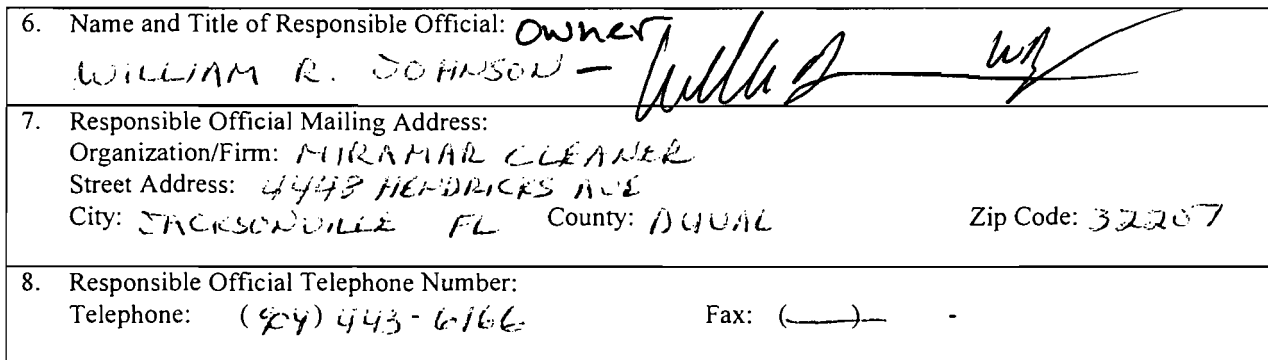 6. Name and Title of Responsible Official: Owner
WILLIAM R. JOHNSON -
7. Responsible Official Mailing Address:
Organization/Firm: MIRAMAR CLEANER
Street Address: 4443 HENDRICKS AVE
City: JACKSONVILLE FL County: DUVAL Zip Code: 32207
8. Responsible Official Telephone Number:
Telephone: (904) 443-6166 Fax: ( ) -